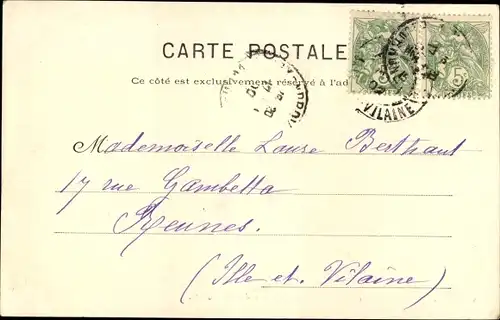 CARTE POSTALE
Ce côté est exclusivement réservé à l'ad
5
VILAINE
Mademoiselle Louise Bertraut
17 rue Gambetta
Rennes.
(Ille et. Vilaine)